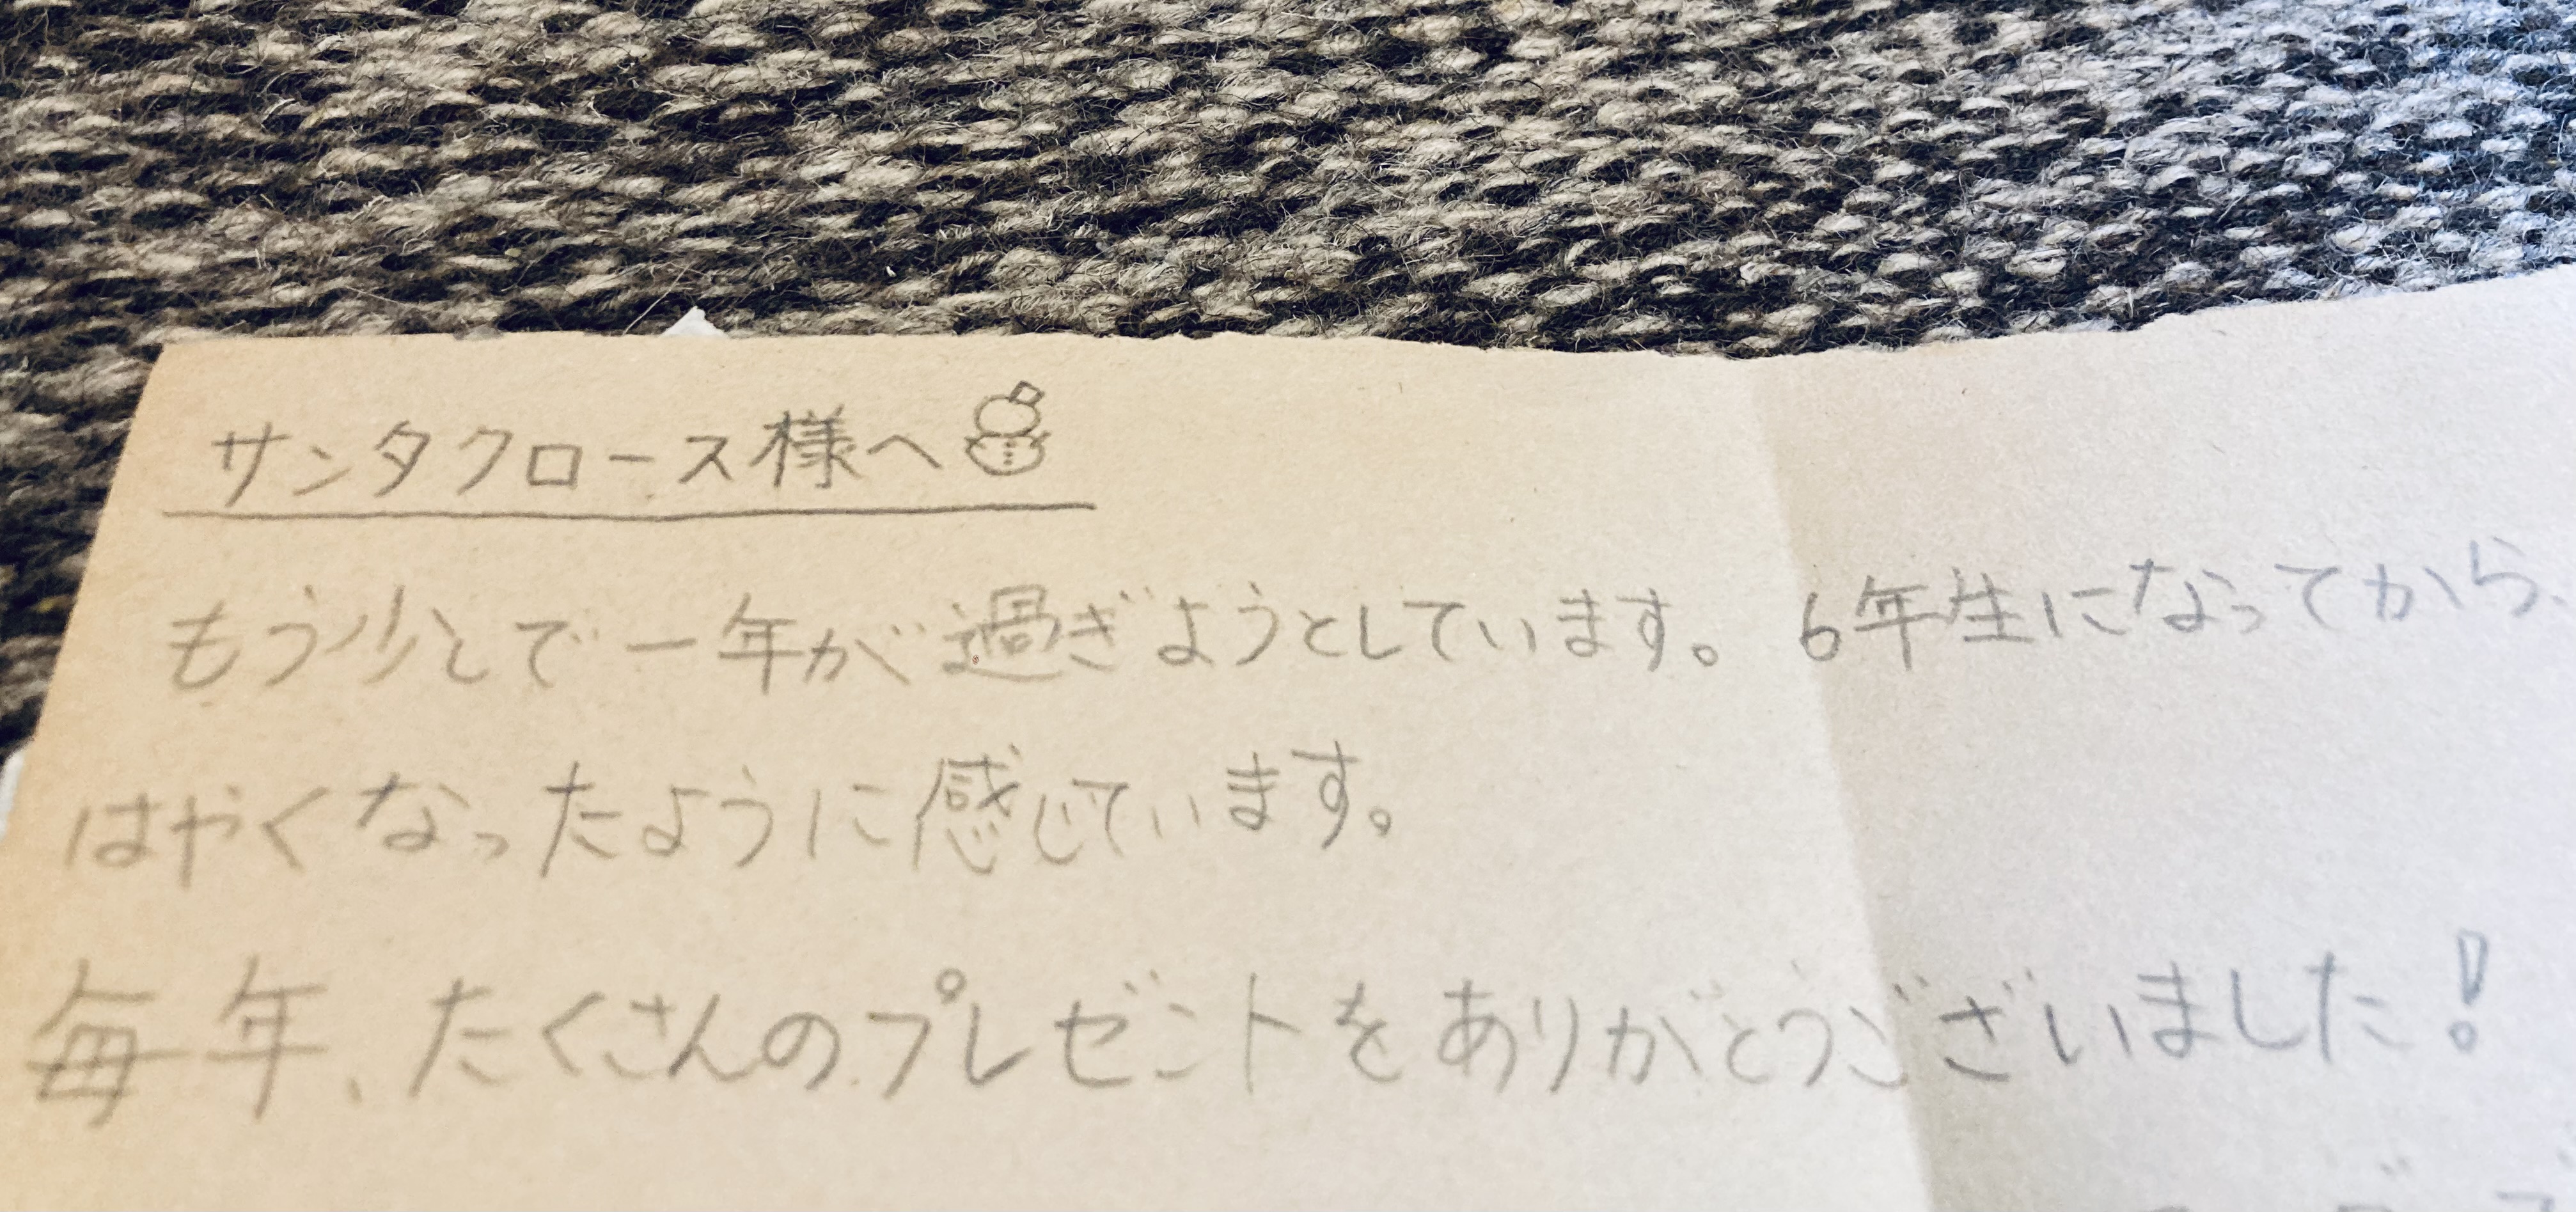 サンタクロース様へ
もう少しで一年が過ぎようとしています。6年生になってから、
はやくなったように感じています。
毎年、たくさんのプレゼントをありがとうございました!